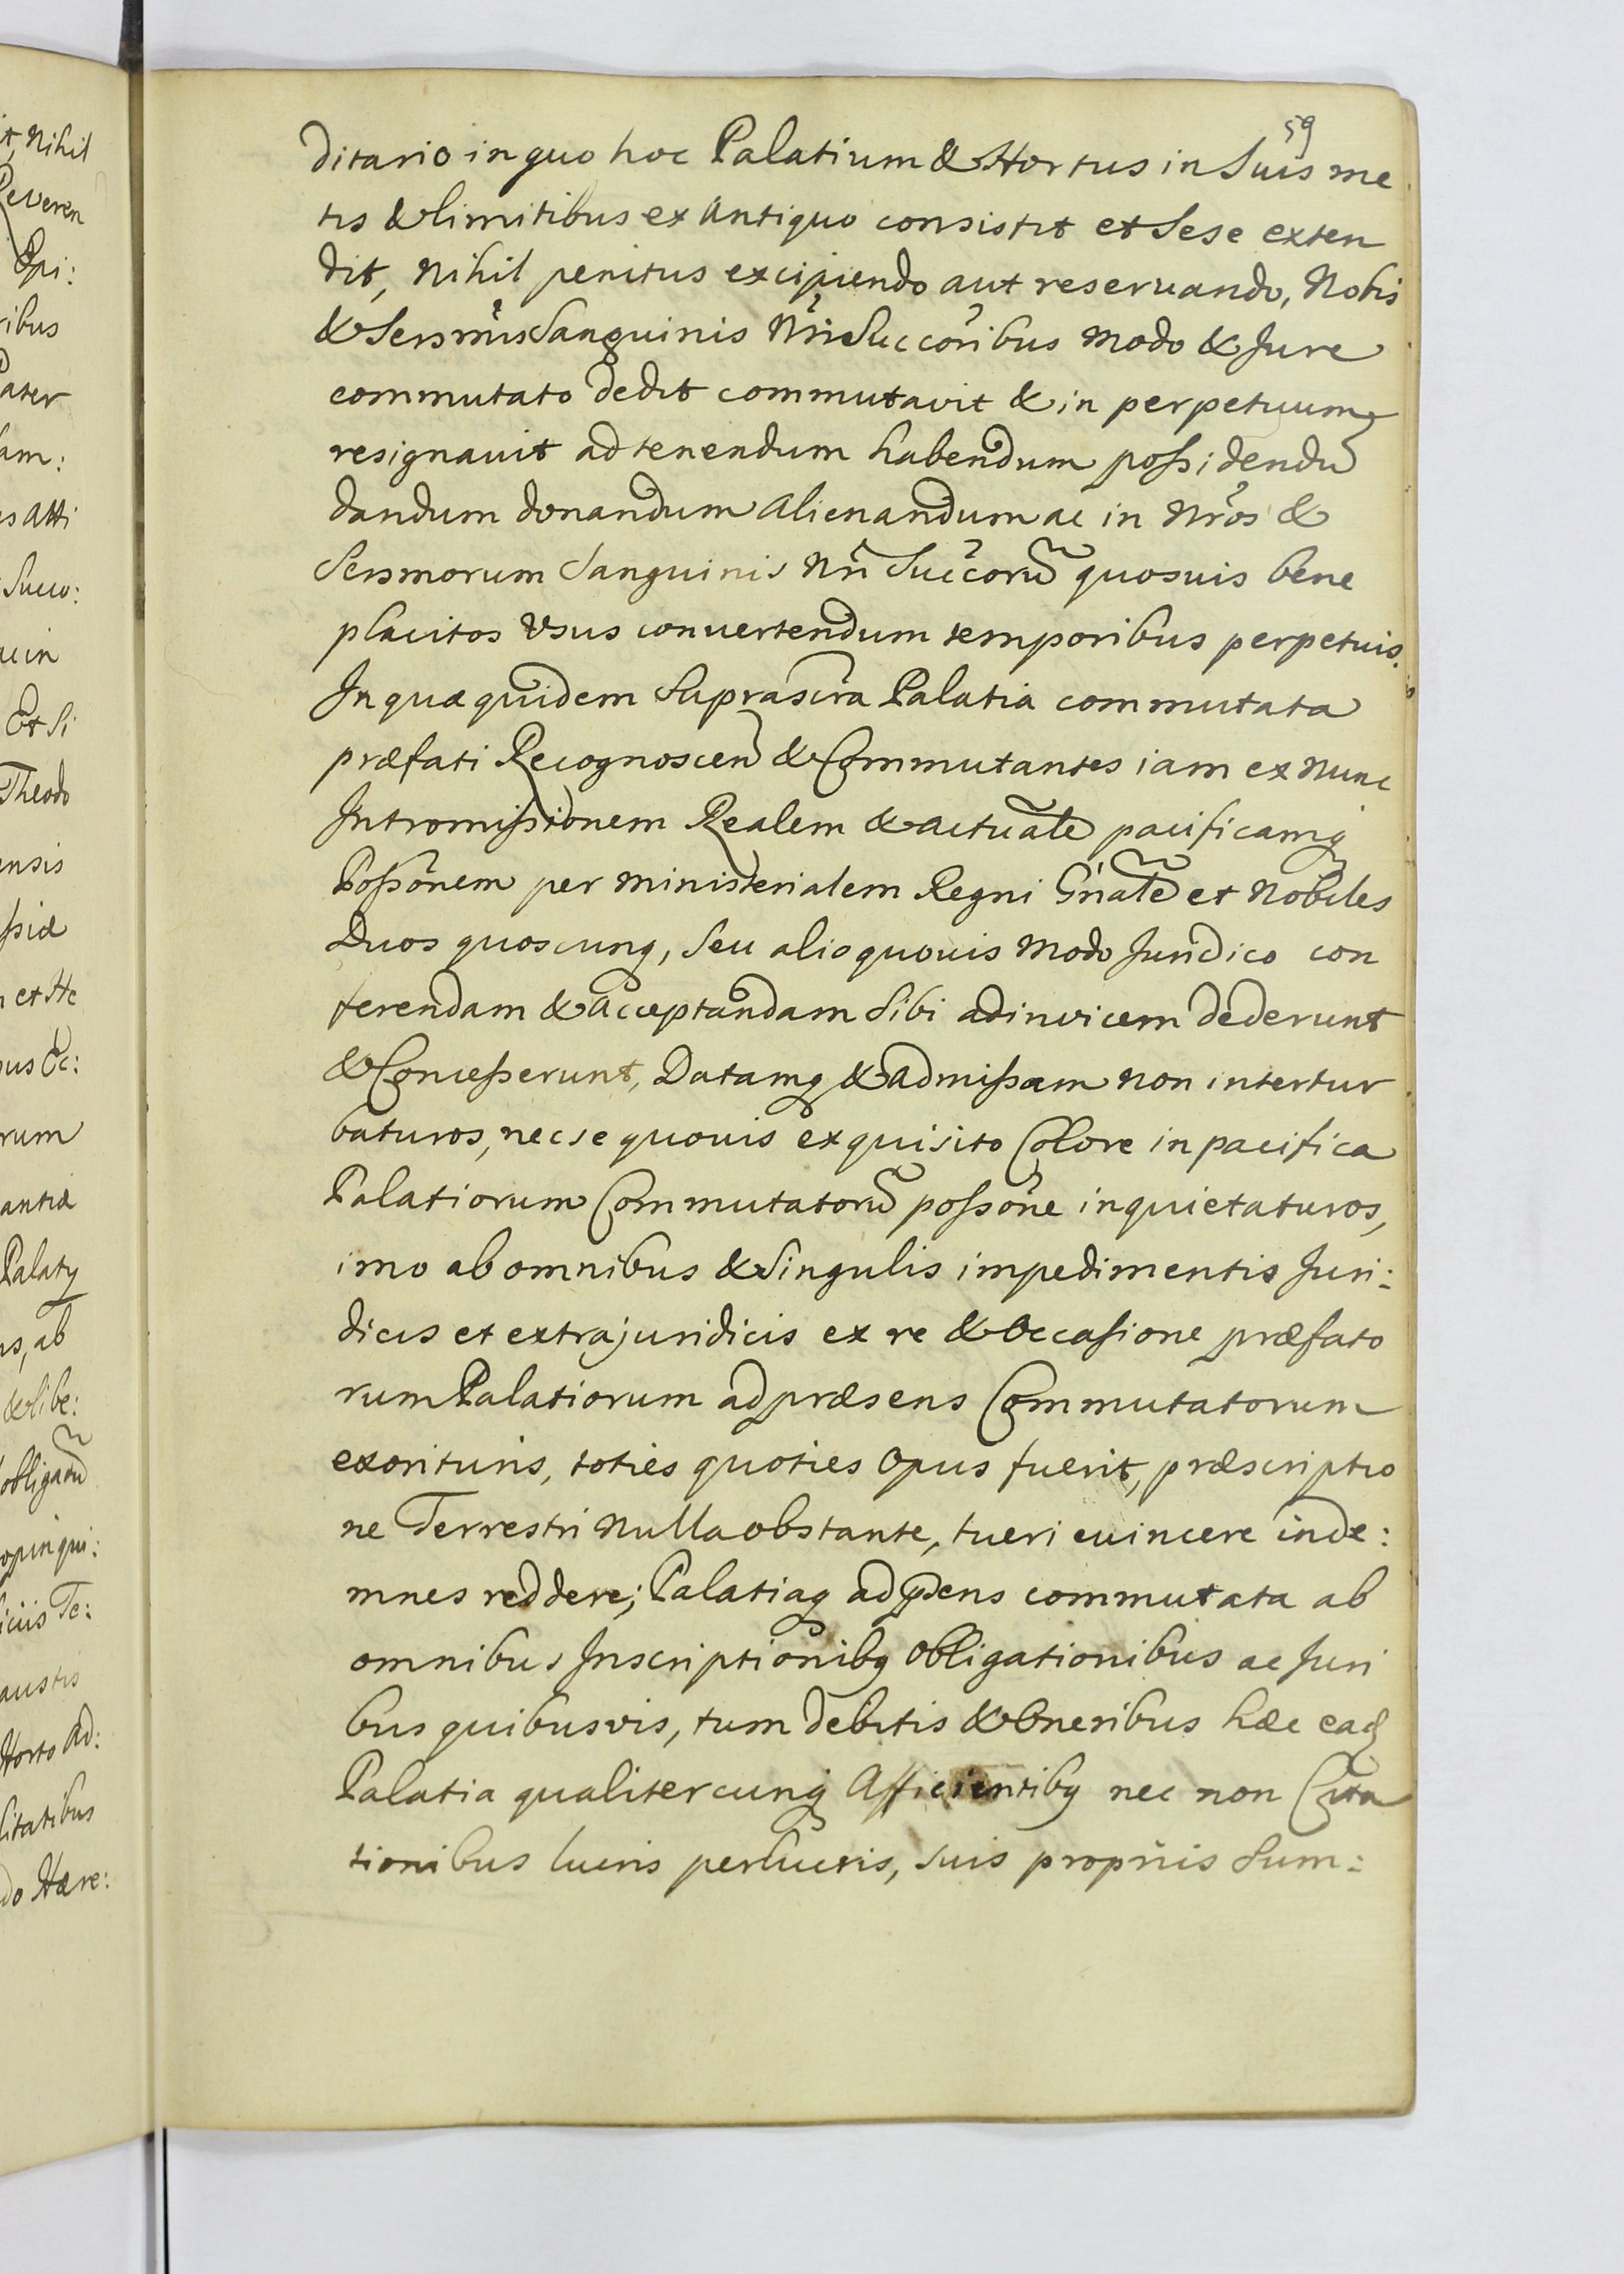 59
ditario in quo hoc Palatium & Hortus in Suis me
tis & limitibus ex Antiquo consistit et Sese exten
dit, Nihil penitus excipiendo aut reseruando, Nobis
& Sersmis Sanguinis Nri Succoribus modo & Jure
commutato dedit commutavit & in perpetuum
resignauit ad tenendum habendum possidendũ
dandum donandum Alienandum ac in Nros &
Sersmorum Sanguinis Nri Succorũ quosuis bene
placitos Vsus conuertendum temporibus perpetuis.
In quæ quidem Suprascra Palatia commutata
præfati Recognoscen & Commutantes iam ex Nunc
Intromissionem Realem & actualẽ pacificamq
Possonem per Ministerialem Regni Gñalẽ et Nobiles
Duos quoscunq, Seu alio quouis Modo Juridico con
ferendam & acceptandam Sibi adinvicem dederunt
& Concesserunt, Datamq & admissam non intertur
baturos, nec se quouis exquisito Colore in pacifica
Palatiorum Commutatorũ possone inquietaturos,
imo ab omnibus & Singulis impedimentis Juri:
dicis et extrajuridicis ex re & Occasione præfato
rum Palatiorum ad præsens Commutatorum
exorituris, toties quoties Opus fuerit, præscriptio
ne Terrestri Nulla obstante, tueri euincere inde:
mnes reddere; Palatiaq ad pñsens commutata ab
omnibus Inscriptionibq Obligationibus ac Juri
bus quibusvis, tum debitis & Oneribus hæc ead
Palatia qualitercunq Afficientibq nec non Cita
tionibus lucris perlucris, suis propriis Sum:
it, Nihil
Reveren
Epi:
ribus
Pater
am:
s Atti
Succo:
ac in
Et Si
Theodo
ensis
ssiæ
et He
us &c:
rum
antiæ
Palaty
s, ab
& libe:
obligatũ
opinqui:
iciis Te:
austis
Horto Ad:
litatibus
do Hære: